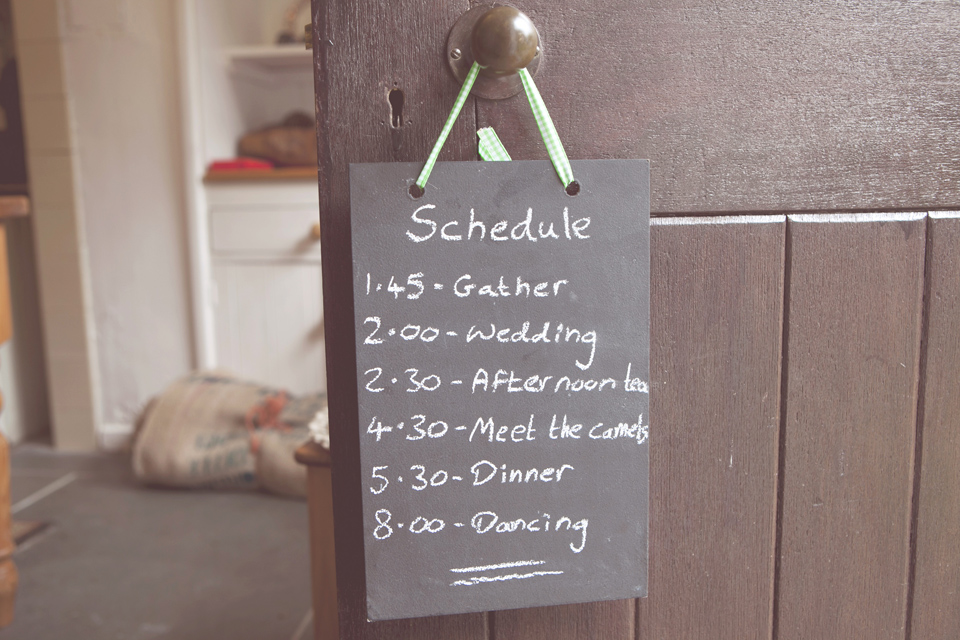 Schedule
1.45 - Gather
2.00 - Wedding
2.30 - Afternoon tea
4.30 - Meet the camels
5.30 - Dinner
8.00 - Dancing